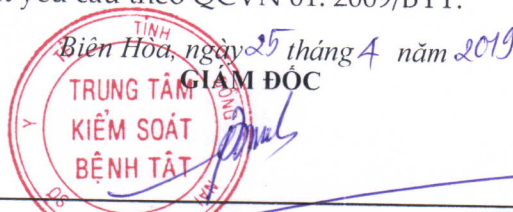 yêu cầu theo QCVN 01: 2009/BYT.
Biên Hòa, ngày 25 tháng 4 năm 2019
GIÁM ĐỐC
TỈNH
ĐỒNG
NAI
SỞ
Y
TRUNG TÂM
KIỂM SOÁT
BỆNH TẬT